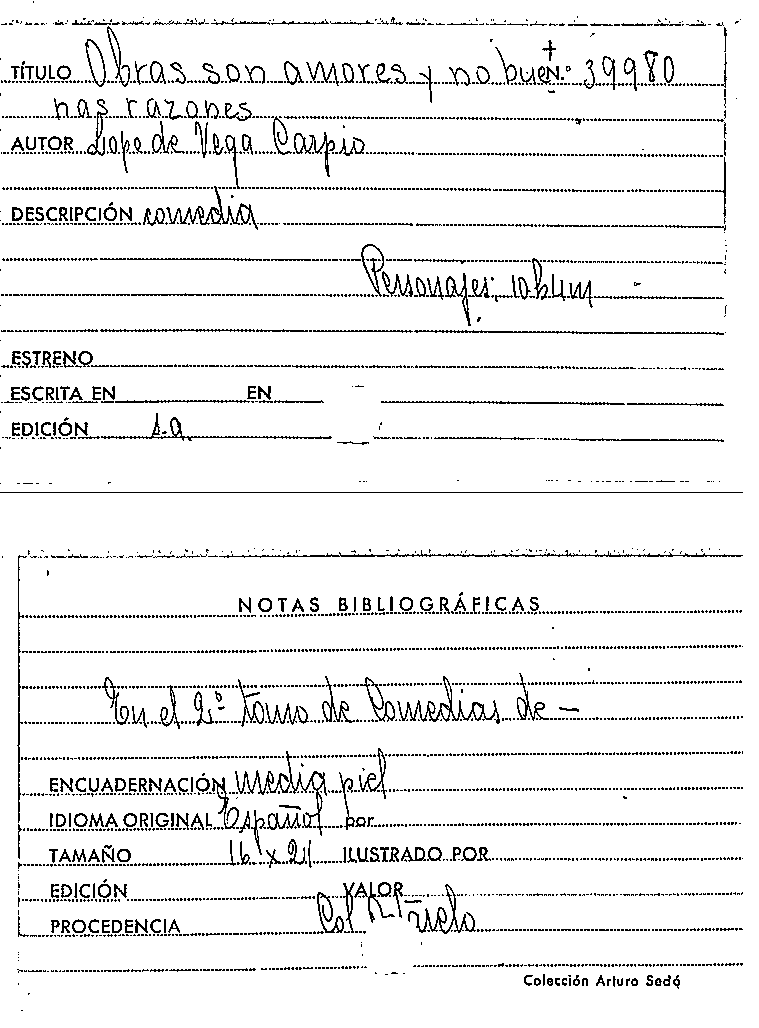 TÍTULO Obras son amores y no bue N.º 39980
nas razones
AUTOR Lope de Vega Carpio
DESCRIPCIÓN comedia
Personajes:
ESTRENO
ESCRITA EN EN
EDICIÓN s.a.
NOTAS BIBLIOGRÁFICAS
En el 2º tomo de Comedias de —
ENCUADERNACIÓN media piel
IDIOMA ORIGINAL Español por
TAMAÑO 16 x 21 ILUSTRADO POR
EDICIÓN VALOR
PROCEDENCIA Col
Colección Arturo Sedó